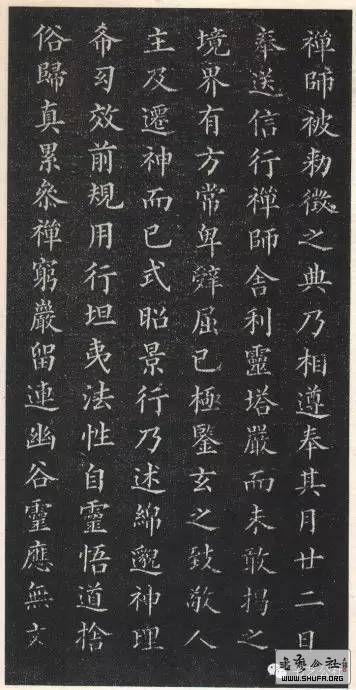 禪師被勑徵之典乃相遵奉其月廿二日
奉送信行禪師舍利靈塔嚴而未敢揚之
境界有方常卑辭屈己極鑒玄之致敬人
主及遷神而已式昭景行乃述緜邈神理
希司效前規用行坦夷法性自靈悟道捨
俗歸真累叅禪窮巖留連幽谷靈應無文
WWW.SHUFA.ORG